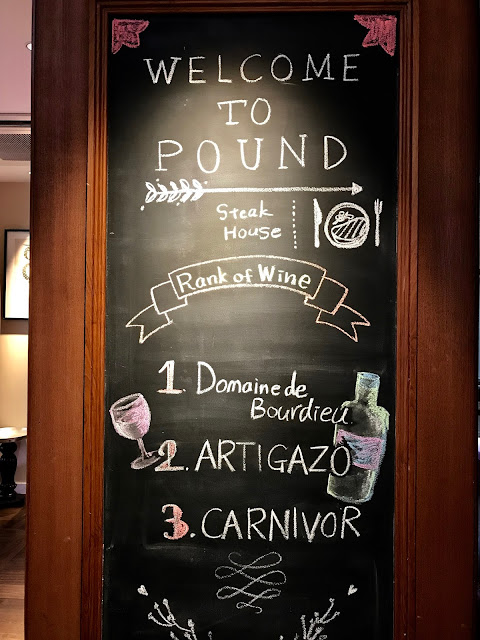 WELCOME
TO
POUND
Steak
House
Rank of Wine
1. Domaine de
Bourdieu
2. ARTIGAZO
3. CARNIVOR